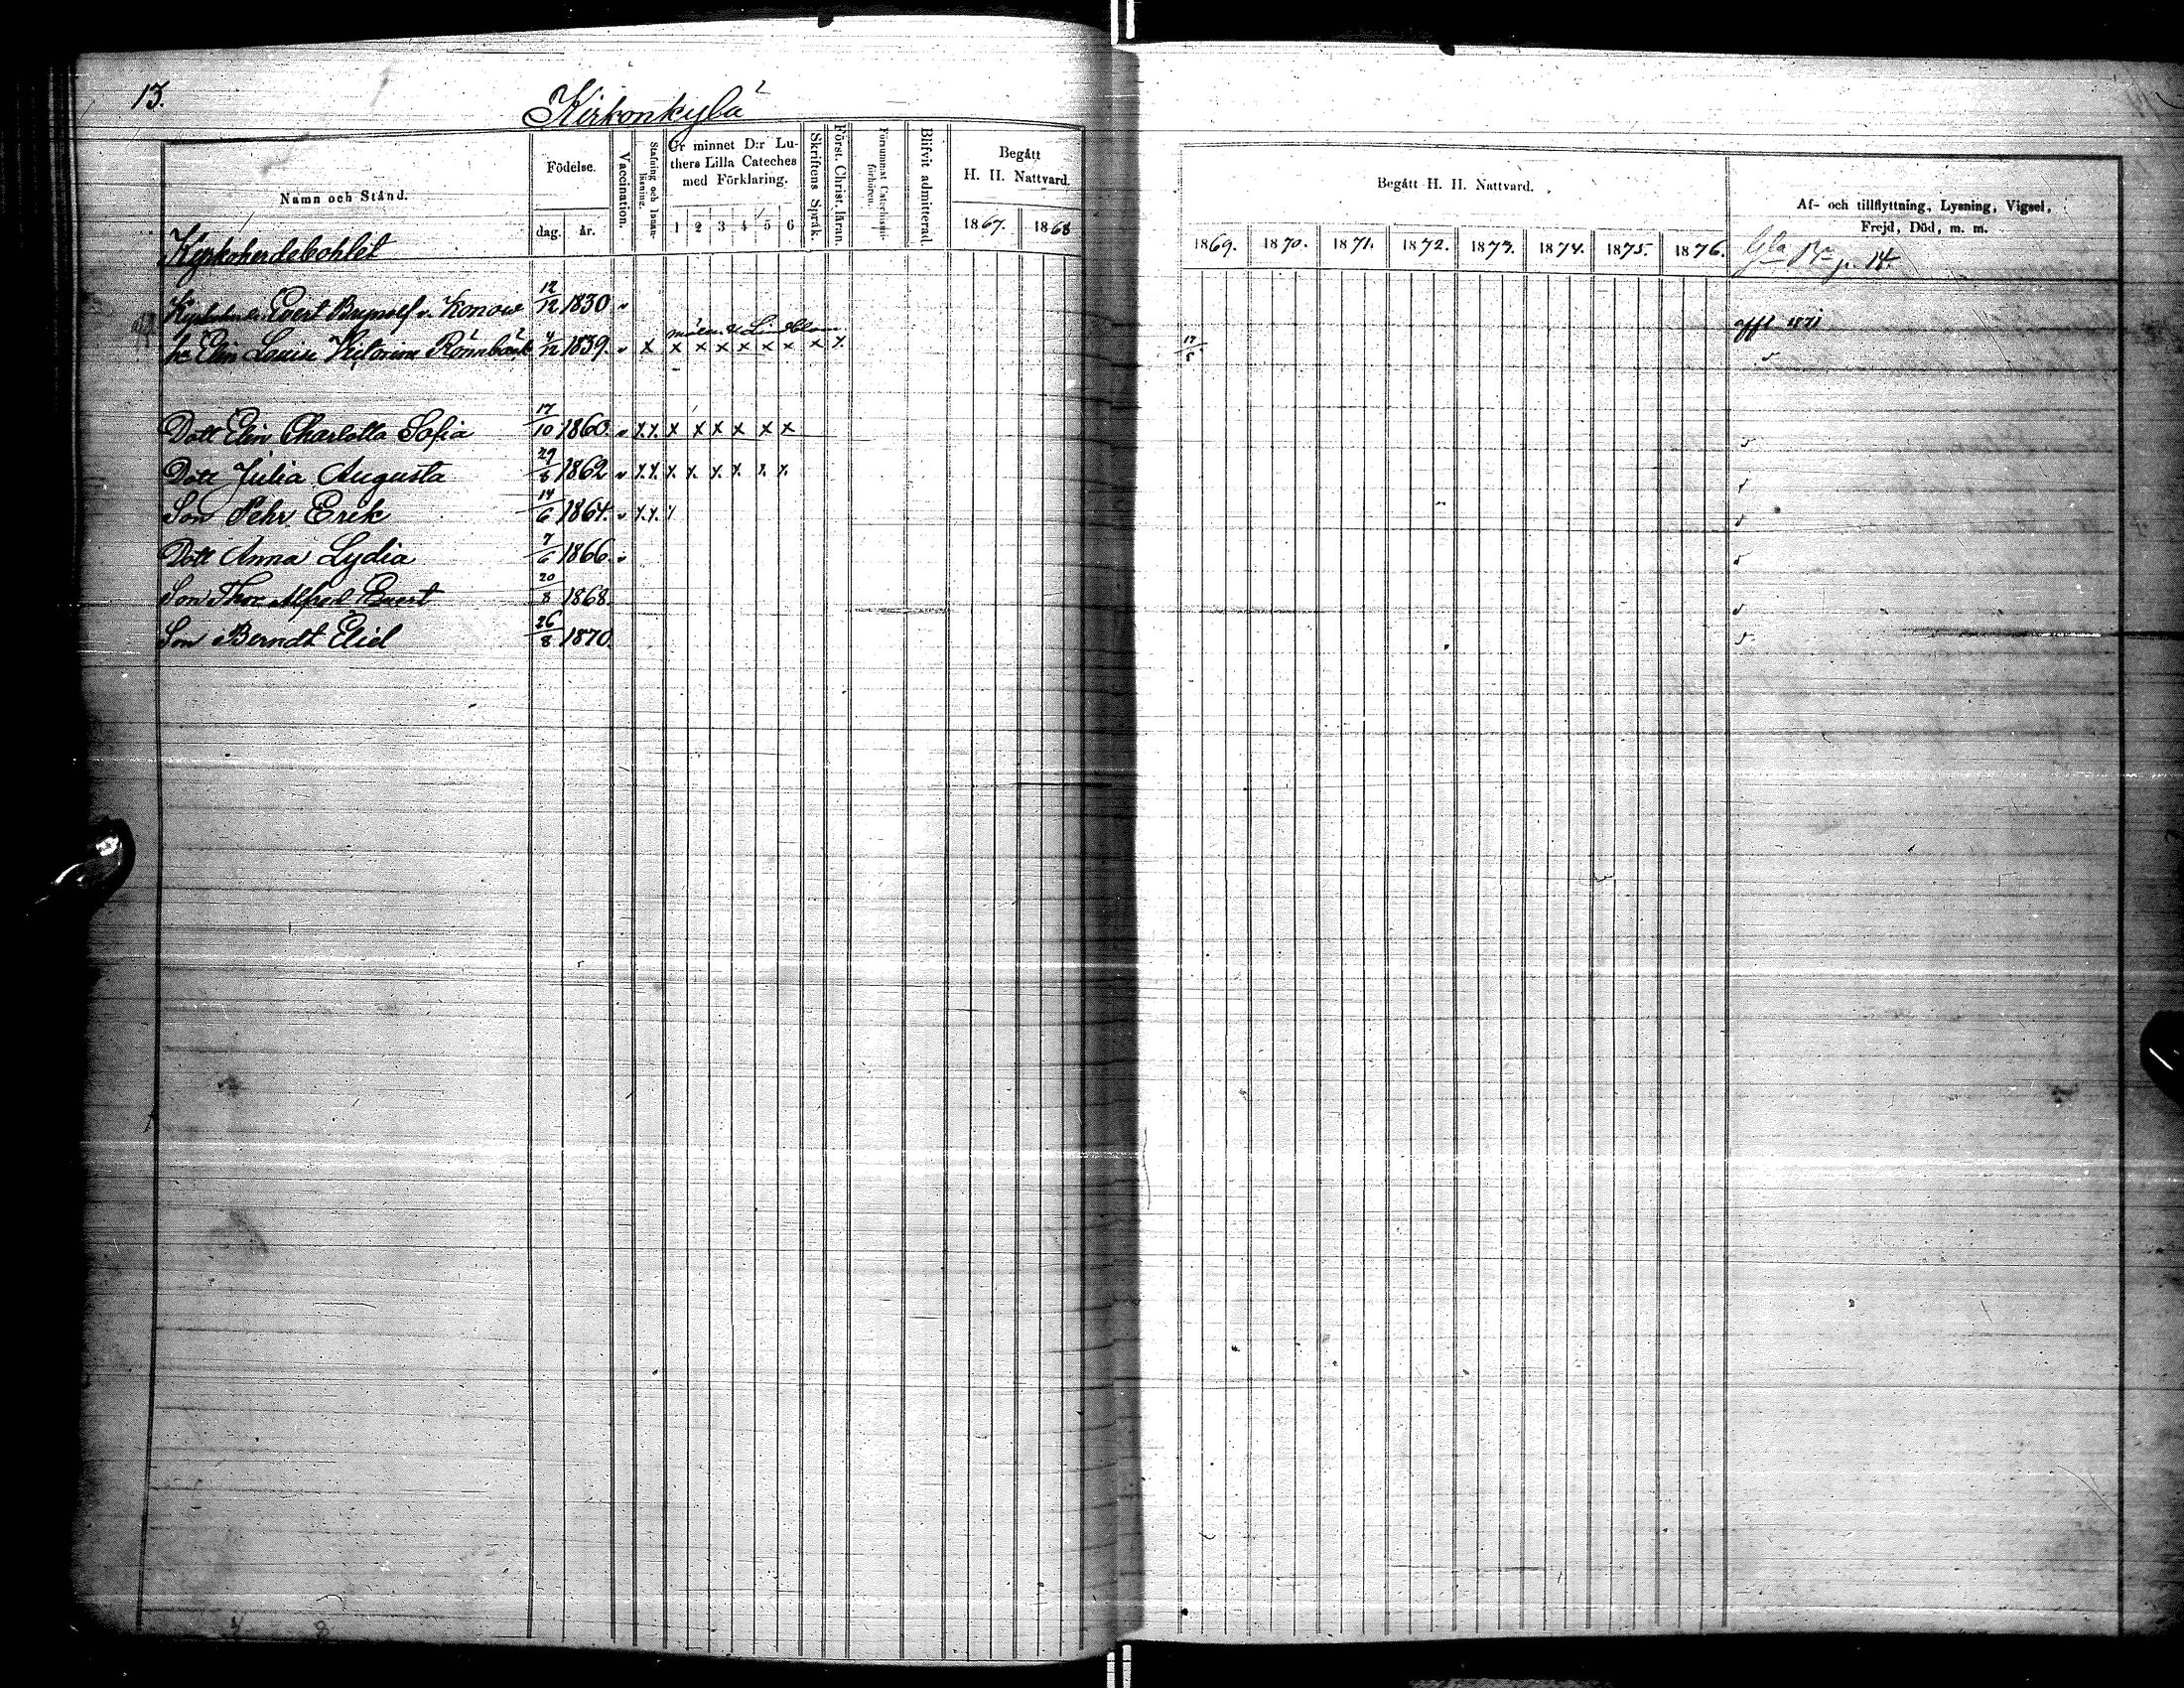 13.
Kirkonkylä
Namn och Stånd.
Födelse.
dag.
år.
Vaccination.
Stafning och Innanläsning.
Ur minnet D:r Lu-
thers Lilla Cateches
med Förklaring.
1 2 3 4 5 6
Skriftens Språk.
Först. Christ. läran.
Försummat Catechismi-
förhören.
Blifvit admitterad.
Begått
H. H. Nattvard.
1867. 1868
Begått H. H. Nattvard.
1869. 1870. 1871. 1872. 1873. 1874. 1875. 1876.
Af- och tillflyttning, Lysning, Vigsel,
Frejd, Död, m. m.
Gla p. 14
Kyrkoherdebohlet
Evert Brynolf v. Konow 12/12 1830 affl 1871
Elin Lovisa Victorina Rönnbäck 4/12 1839. x x x x x x x x x 17/5
Dott Elin Charlotta Sofia 17/10 1860. x x x x x x x x
Dott Julia Augusta 29/8 1862 x x x x x x x x
Son Pehr Erik 14/6 1864. x x
Dott Anna Lydia 7/6 1866
Son Thor Alfred Evert 20/8 1868.
Son Berndt Eliel 26/8 1870.